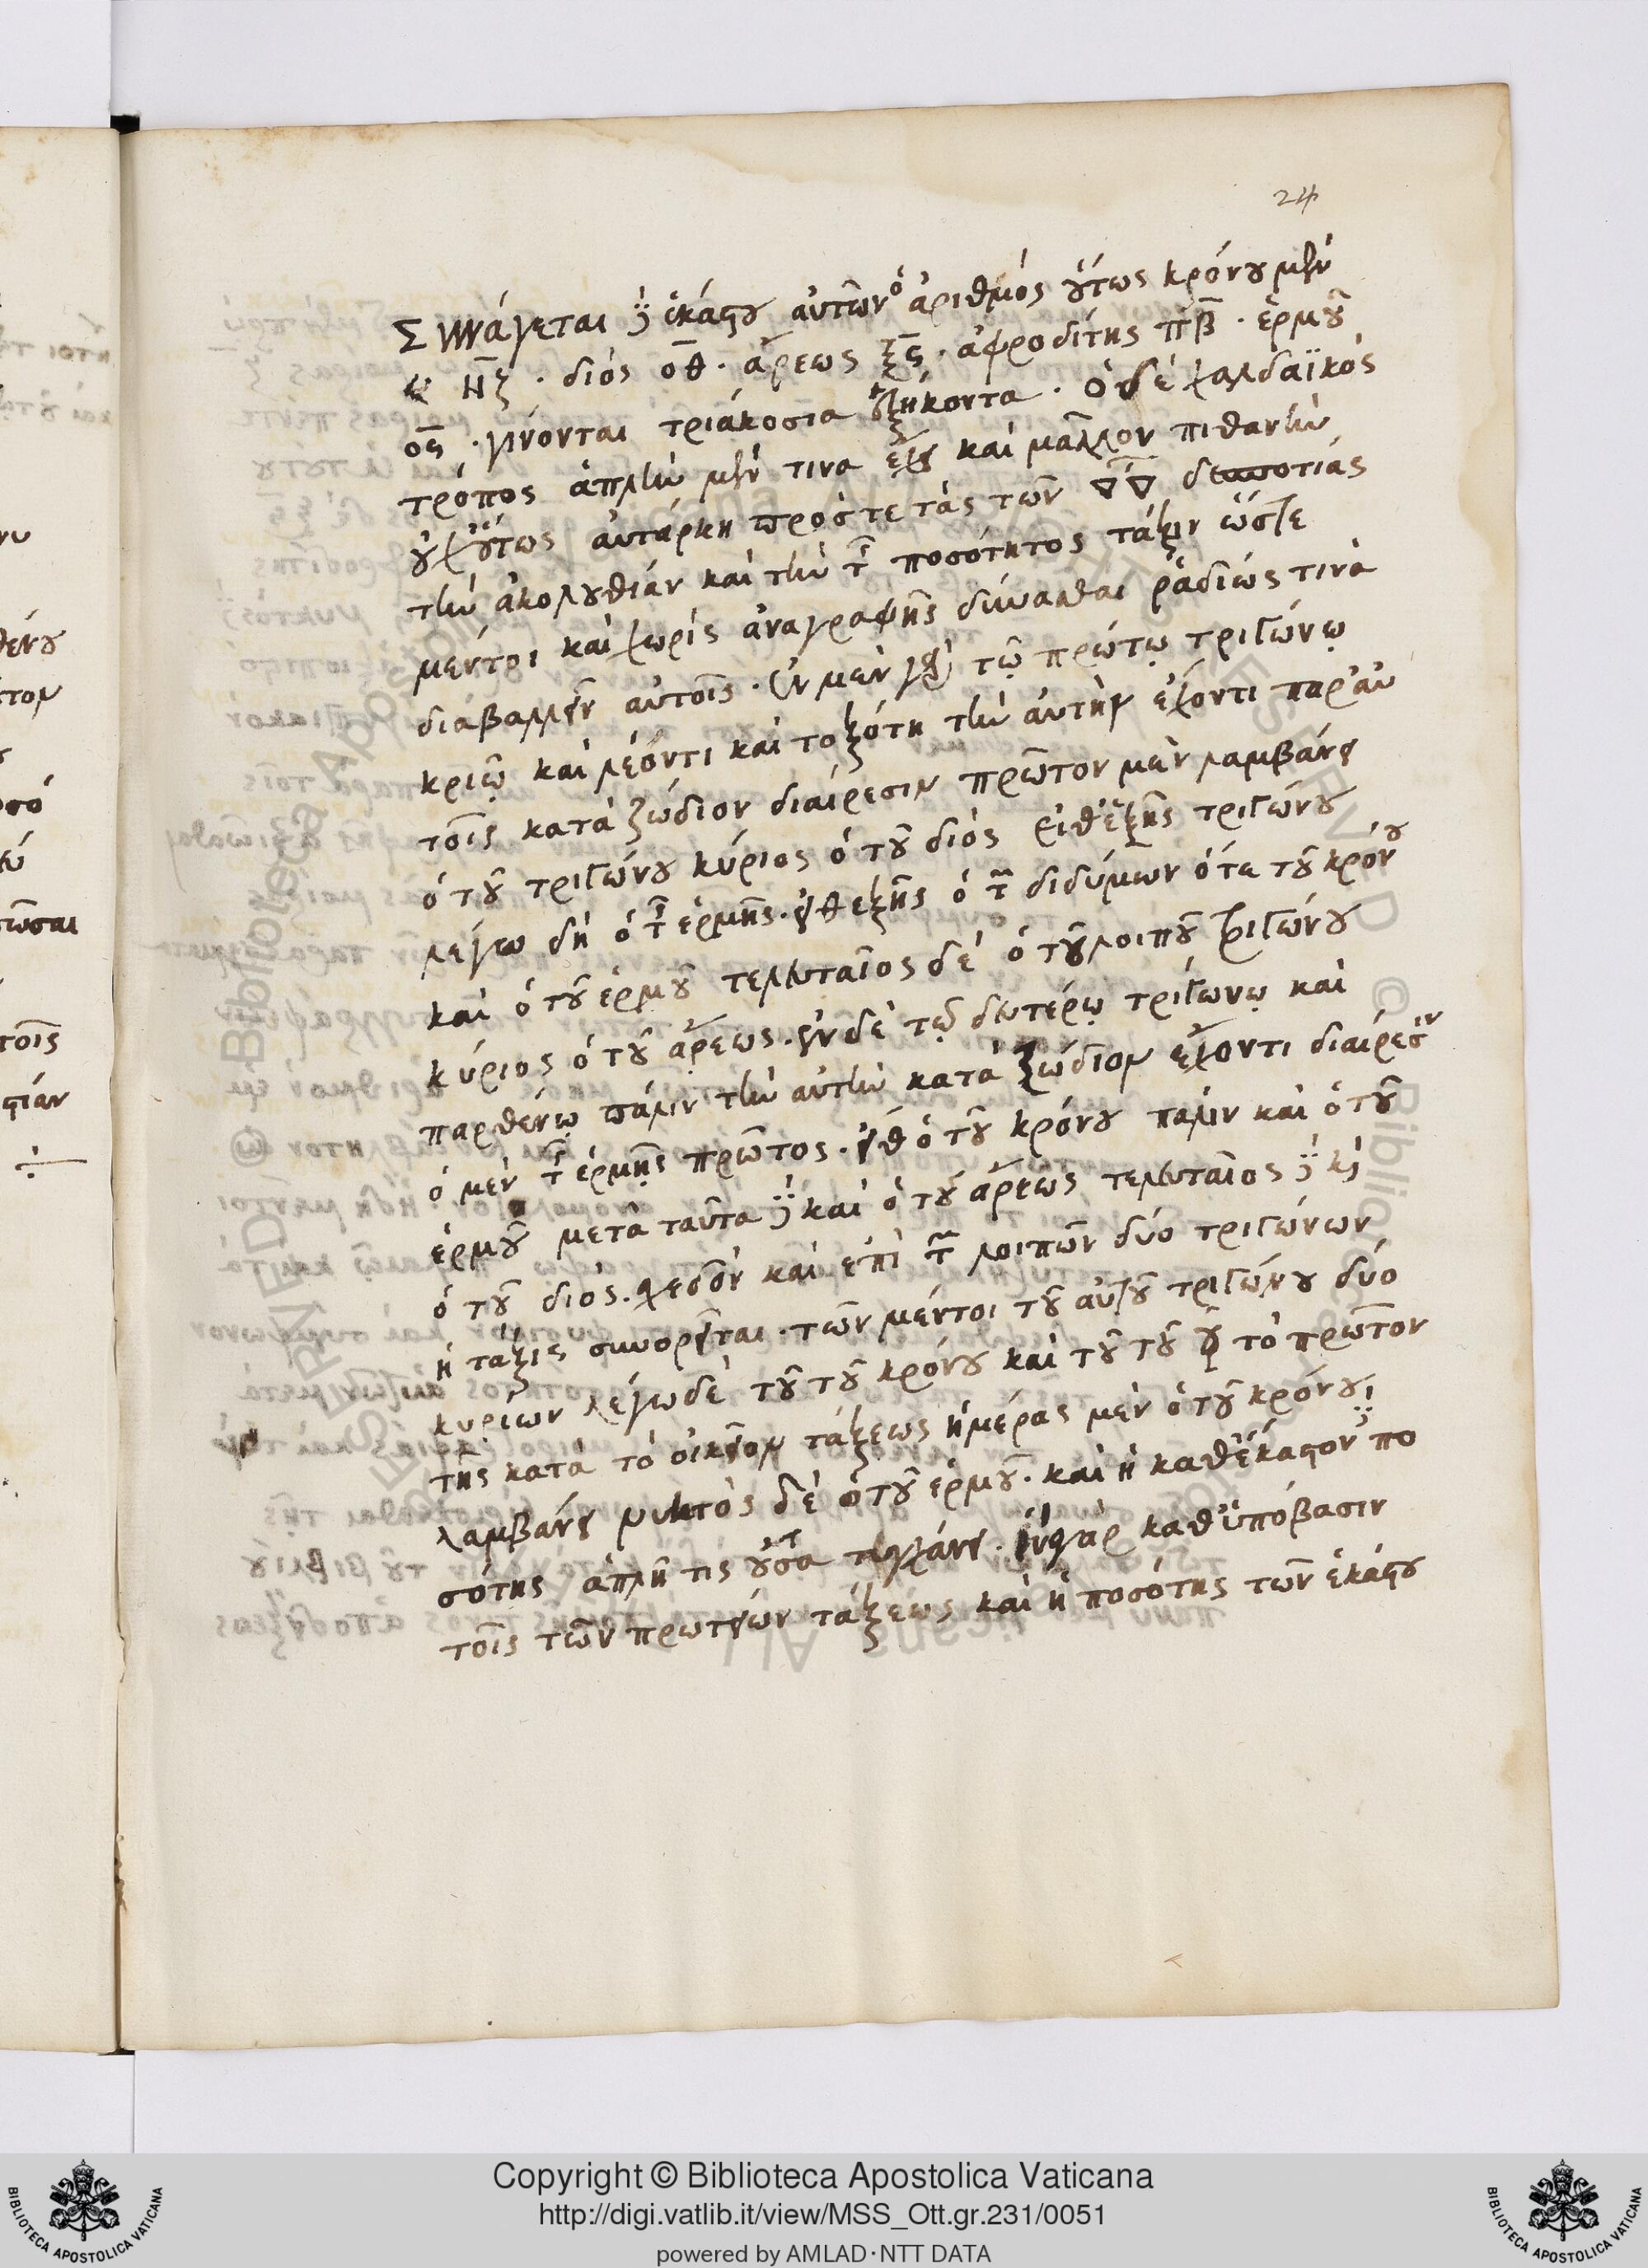 24
Συνάγεται δὲ ἑκάστου αὐτῶν ὁ ἀριθμὸς οὕτως κρόνου μὲν
νζ · διὸς οθ · ἄρεως ξϛ · ἀφροδίτης πβ · ἑρμοῦ
οϛ · γίνονται τριάκοσια ἑξήκοντα · ὁ δὲ χαλδαϊκὸς
τρόπος ἁπλὴν μέν τινα ἔχει καὶ μᾶλλον πιθανὴν
οὐχ οὕτως αὐτάρκη πρός τε τὰς τῶν δεσποτίας
τὴν ἀκολουθίαν καὶ τὴν τῆς ποσότητος τάξιν ὥστε
μέντοι καὶ χωρὶς ἀναγραφῆς δύνασθαι ῥαδίως τινὰ
διαβαλλεῖν αὐτοῖς · ἐν μὲν γὰρ τῷ πρώτῳ τριγώνῳ
κριῷ καὶ λέοντι καὶ τοξότη τὴν αὐτὴν ἔχοντι παρ' αὐ
τοῖς κατὰ ζώδιον διαίρεσιν πρῶτον μὲν λαμβάνει
ὁ τοῦ τριγώνου κύριος ὁ τοῦ διός εἶθ' ἑξῆς τριγώνου
λέγω δὴ ὁ τῆς ἑρμῆς · εἶθ' ἑξῆς ὁ τῶν διδύμων ὅ τε τοῦ κρόνου
καὶ ὁ τοῦ ἑρμοῦ τελευταῖος δὲ ὁ τοῦ λοιποῦ τριγώνου
κύριος ὁ τοῦ ἄρεως · ἐν δὲ τῷ δευτέρῳ τριγώνῳ καὶ
παρθένῳ πάλιν τὴν αὐτὴν κατὰ ζώδιον ἔχοντι διαίρεσιν
ὁ μὲν τῆς ἑρμῆς πρῶτος · εἶθ' ὁ τοῦ κρόνου πάλιν καὶ ὁ τοῦ
ἑρμοῦ μετὰ ταῦτα δὲ καὶ ὁ τοῦ ἄρεως τελευταῖος δὲ καὶ
ὁ τοῦ διός · σχεδὸν καὶ ἐπὶ τῶν λοιπῶν δύο τριγώνων
ἡ τάξις συνορεῖται · τῶν μέντοι τοῦ αὐτοῦ τριγώνου δύο
κυρίων λέγω δὲ τοῦ τοῦ κρόνου καὶ τοῦ τοῦ ☿ τὸ πρῶτον
τῆς κατὰ τὸ οἰκεῖον τάξεως ἡμέρας μὲν ὁ τοῦ κρόνου
λαμβάνει νυκτὸς δὲ ὁ τοῦ ἑρμοῦ · καὶ ἡ καθ' ἕκαστον πο
σότης ἁπλῆ τις οὖσα τυγχάνει · ἵνα γὰρ καθ' ὑπόβασιν
τοῖς τῶν πρωτείων τάξεως καὶ ἡ ποσότης τῶν ἑκάστου
Copyright © Biblioteca Apostolica Vaticana
http://digi.vatlib.it/view/MSS_Ott.gr.231/0051
powered by AMLAD·NTT DATA
BIBLIOTECA APOSTOLICA VATICANA
BIBLIOTECA APOSTOLICA VATICANA